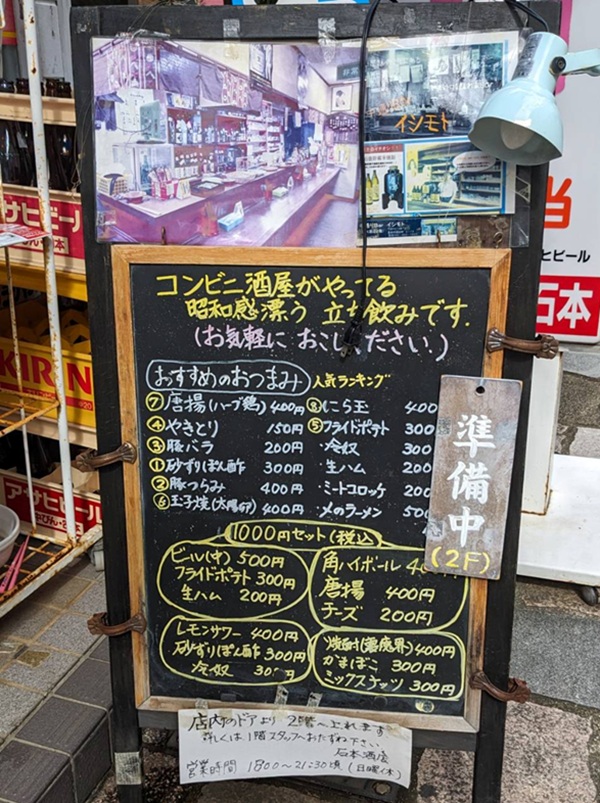 イシモト
アサヒビール
KIRIN
アサヒビール
ヒビール
石本
コンビニ酒屋がやってる
昭和感漂う 立ち飲みです.
(お気軽に おこしください.)
おすすめのおつまみ 人気ランキング
⑦唐揚(ハーブ鶏)400円
④やきとり 150円
③豚バラ 200円
①砂ずりぽん酢 300円
②豚つらみ 400円
⑥玉子焼(太陽卵)400円
⑧にら玉 400
⑤フライドポテト 300
・冷奴 300
・生ハム 200
・ミートコロッケ 200
・〆のラーメン 500
準備中
(2F)
1000円セット(税込)
ビール(中)500円
フライドポテト300円
生ハム 200円
角ハイボール 4
唐揚 400円
チーズ 200円
レモンサワー 400円
砂ずりぽん酢 300円
冷奴 300円
焼酎(悪魔界)400円
かまぼこ 300円
ミックスナッツ 300円
店内のドアより 2階へ上れます
詳しくは1階スタッフへおたずね下さい
石本酒店
営業時間 1800〜21:30頃(日曜休)